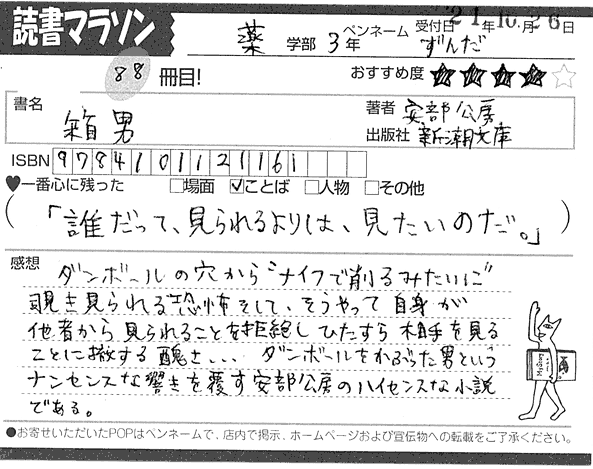 読書マラソン
薬 学部 3年 ペンネーム ずんだ
受付日 21年10月26日
88 冊目! おすすめ度 ★★★★☆
書名 箱男
著者 安部公房
出版社 新潮文庫
ISBN 9784101121161
♥一番心に残った □場面 ☑ことば □人物 □その他
(「誰だって、見られるよりは、見たいのだ。」)
感想
ダンボールの穴から“ナイフで削るみたいに”
覗き見られる恐怖そして、そうやって自身が
他者から見られることを拒絶しひたすら相手を見る
ことに徹する醜さ... ダンボールをかぶった男という
ナンセンスな響きを覆す安部公房のハイセンスな小説
である。
●お寄せいただいたPOPはペンネームで、店内で掲示、ホームページおよび宣伝物への転載をご了承ください。